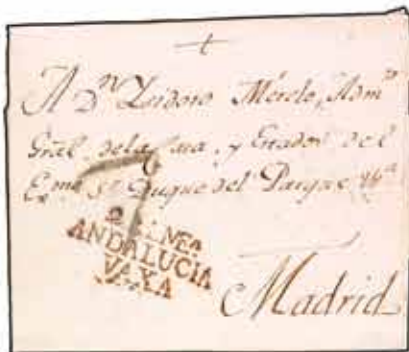 +
A Dn Isidoro Merelo, Admor
Gral de la Casa, y Estados del
Exmo Sr Duque del Parque &a
ANDALUCIA
VAXA
Madrid